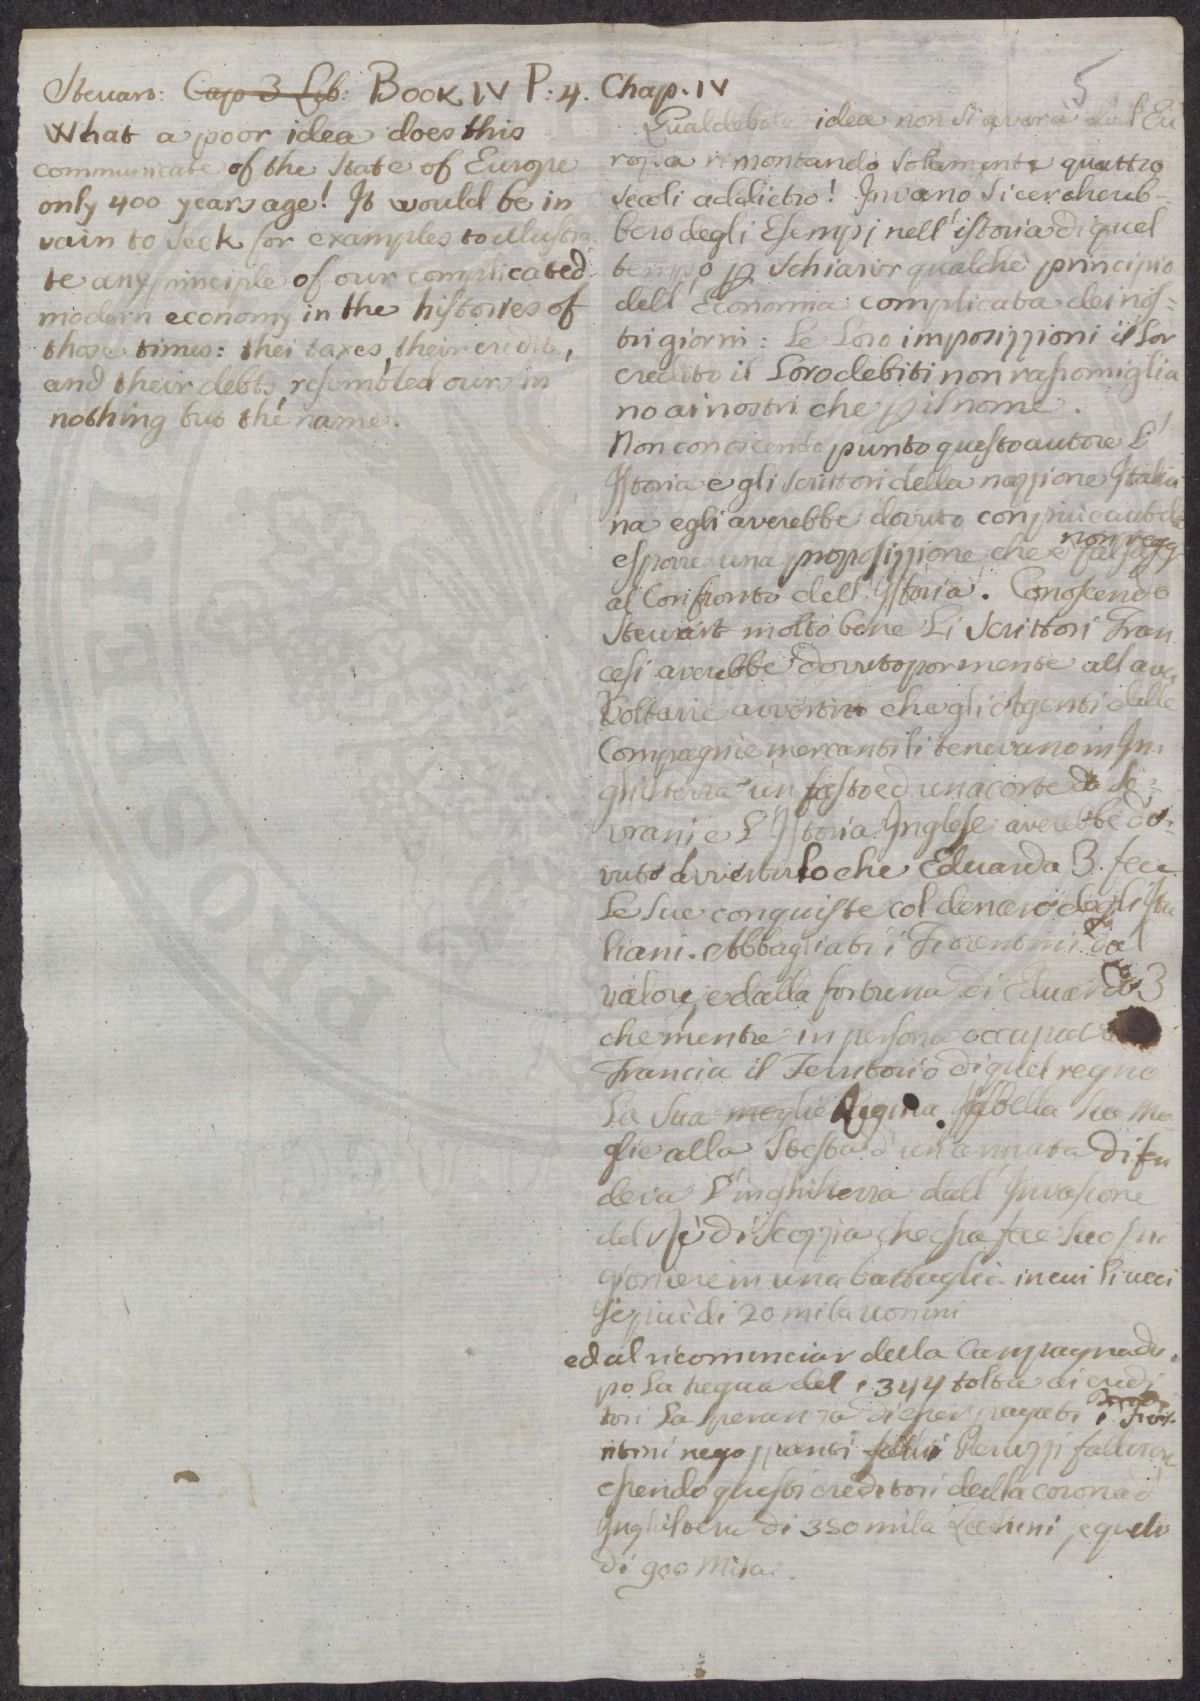 Steuart: Cap 3 Lib: Book IV P: 4. Chap. IV
5
What a poor idea does this
communicate of the State of Europe
only 400 years age! It would be in
vain to seek for examples to illustra
te any principle of our complicated
modern economy in the histories of
those times: thei taxes, their credit,
and their debts, resembled ours in
nothing but the name.
Qual debole idea non si averà dell'Eu
ropa rimontando solamente quattro
secoli addietro! Invano si cerchereb-
bero degli Esempj nell'istoria di quel
tempo p schiarir qualche principio
dell'Economia complicata dei nos=
tri giorni: Le Loro imposizzioni il Lor
credito il Loro debiti non rassomiglia
no ai nostri che p il nome.
Non conoscendo punto questo autore L'
Istoria e gli scrittori della nazzione Italia
na egli averebbe dovuto con piu cautela
esporre una proposizzione che è falsa
non regg
al Confronto dell'Istoria. Conoscendo
Steuart molto bene Li Scrittori Fran
cesi averebbe dovuto
Voltaire avvertito che gli Agenti delle
Compagnie mercantili tenevano in In
ghilterra un fasto ed una corte da So=
vrani e L'Istoria Inglese averebbe do=
vuto avvertirlo che Eduardo 3. fece
Le Sue conquiste col denaro degli Ita
liani. Abbagliati i Fiorentini dal
valore, e dalla fortuna di Eduardo 3
che mentre in persona occupava
Francia il Territorio di quel regno
La Sua moglie Regina Isabella Sua Mo
glie alla Testa d'un armata difen
deva L'inghilterra dall'Invasione
del Rè di Scozzia che essa fece Suo pri
gioniere in una battaglia in cui li ucci
se più di 20 mila uomini
ed al ricominciar della Campagna do
po La tregua del 1344 tolta ai credi
tori La Speranza di esser pagati i Fiore
ntini negozzianti Peruzzi fallirono
essendo questi creditori della corona d'
Inghilterra di 350 mila Zecchini, e quelli
di 900 Mila.